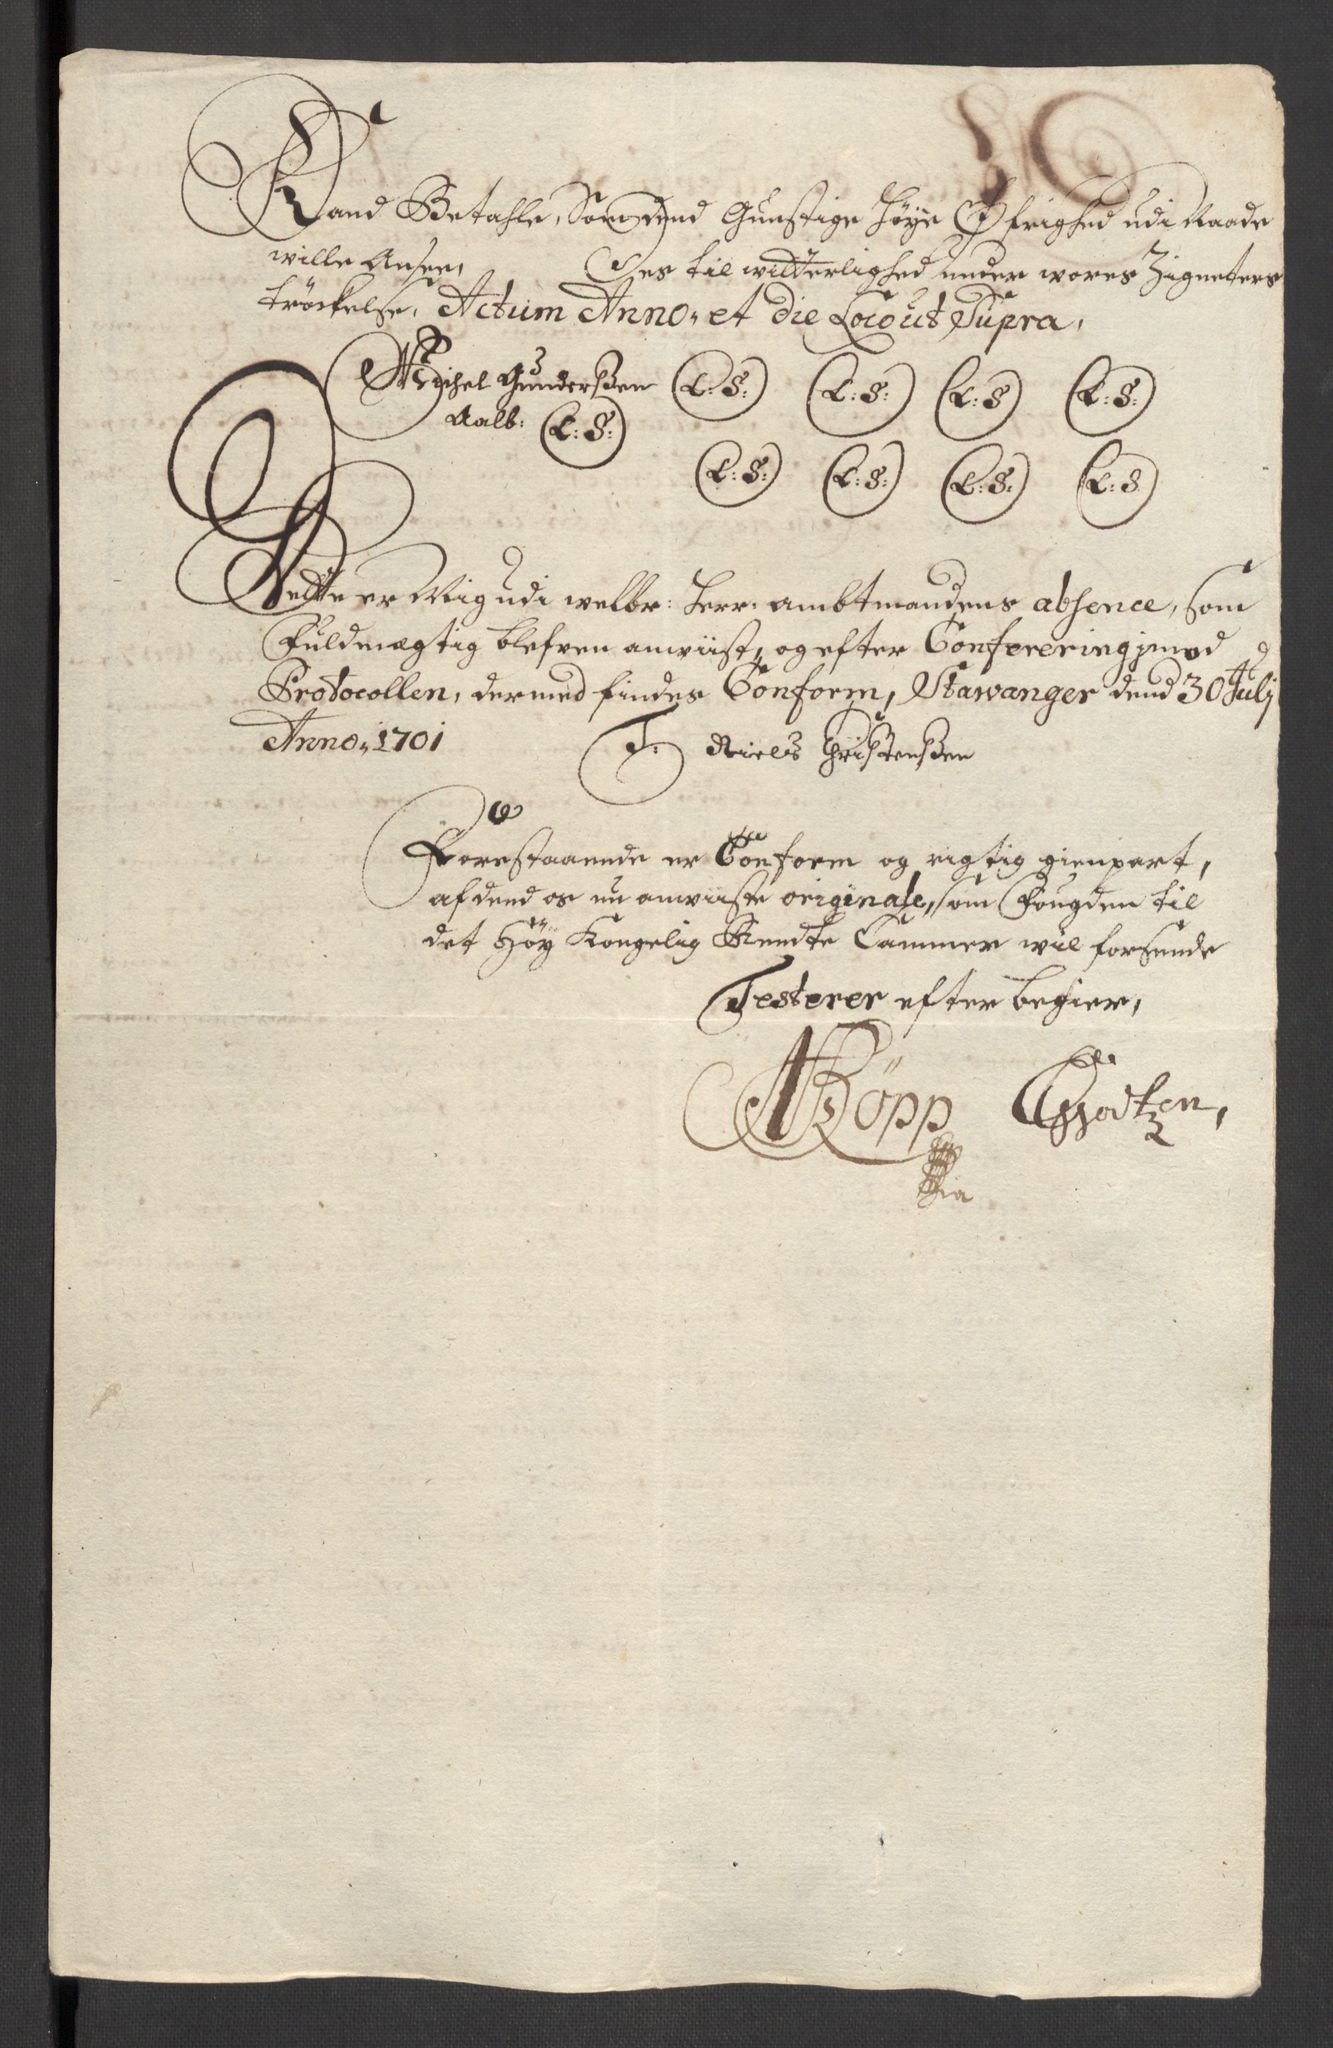 Kand Betahle, Som dend Gunstige Høye Øfrighed udi Naade
wille Ansee, Des til witterlighed under vores Zigneters
tröckelse, Actum Anno, et die Loco ut Supra,
Michel Gundersßen L: S: L: S: L: S L: S:
Aalb: L: S:
L: S: L: S: L: S: L: S
Dette er Mig udi welbr: Herr: ambtmandens absence, som
Fuldmegtig blefven anviist, og efter Confererings mod
Protocollen, dermed findes Conform, Stawanger dend 30 Julj
Anno, 1701 T: Niels Christensßen
Forestaaende er Conform og rigtig gienpart,
af dend os nu anviiste originale, som Fougden til
det Höy Kongelig Rendte Cammer wil forsende
Testerer efter begier,
Röpp